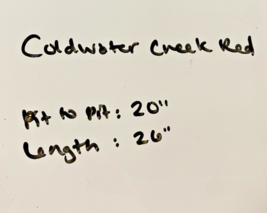 Coldwater Creek Red
Pit to Pit: 20"
Length : 26"